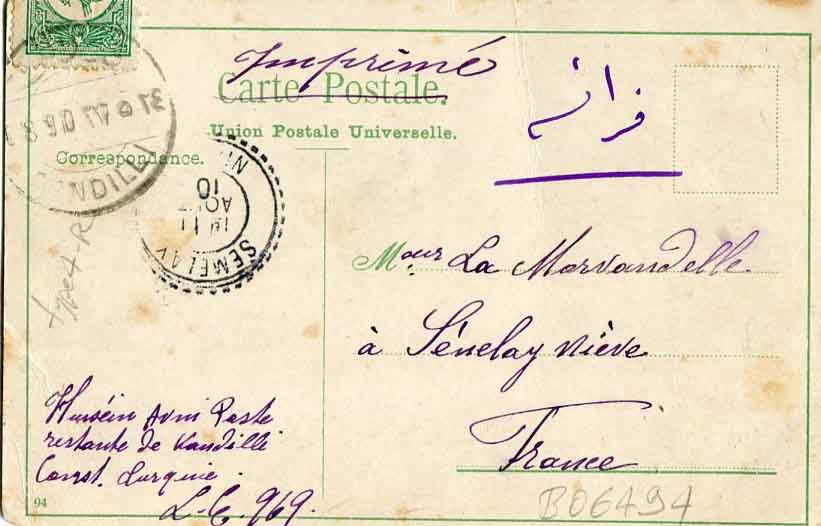 Imprimé
Carte Postale.
Union Postale Universelle.
Correspondance.
فرانسه
KANDILLI
SEMELAY
10
AOUT
type 4 - R
M our La Morvandelle
à Sémelay Nièvre
France
Hussein Avni Poste
restante de Kandilli
Const. Turquie.
L.C. 969.
94
B06494